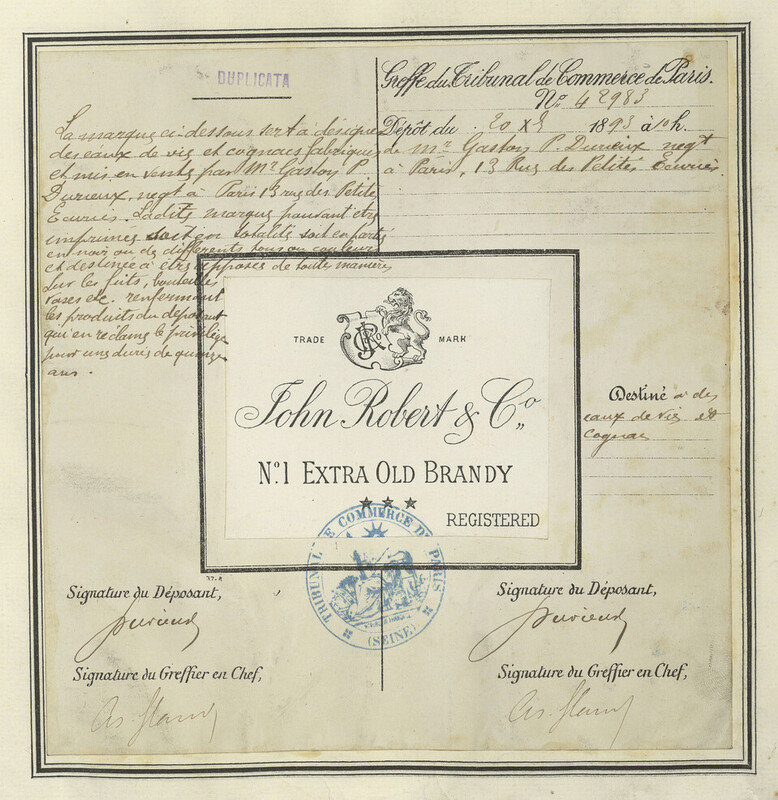 DUPLICATA
La marque ci-dessous sert à désigner
des eaux de vie et cognacs fabriqués
et mis en vente par Mr Gaston P.
Durieux, negt à Paris 13 rue des Petites
Ecuries. Ladite marque pouvant être
imprimée soit en totalité soit en partie
en noir ou de différents tons ou couleurs
et destinée à etre apposée de toutes manières
sur les fûts, bouteilles
vases etc. renfermant
les produits du déposant
qui en réclame le privilège
pour une durée de quinze
ans.
Greffe du Tribunal de Commerce de Paris.
No. 42983
Dépôt du 20 X 1893 à 10 h.
de Mr Gaston P. Durieux negt
à Paris, 13 Rue des Petites Ecuries.
TRADE MARK
John Robert & Co.,,
No. 1 EXTRA OLD BRANDY
★ ★ ★
REGISTERED
Destiné à des
eaux de vie et
cognac
TRIBUNAL DE COMMERCE DE PARIS
(SEINE)
Signature du Déposant,
Durieux
Signature du Greffier en Chef,
Signature du Déposant,
Durieux
Signature du Greffier en Chef,